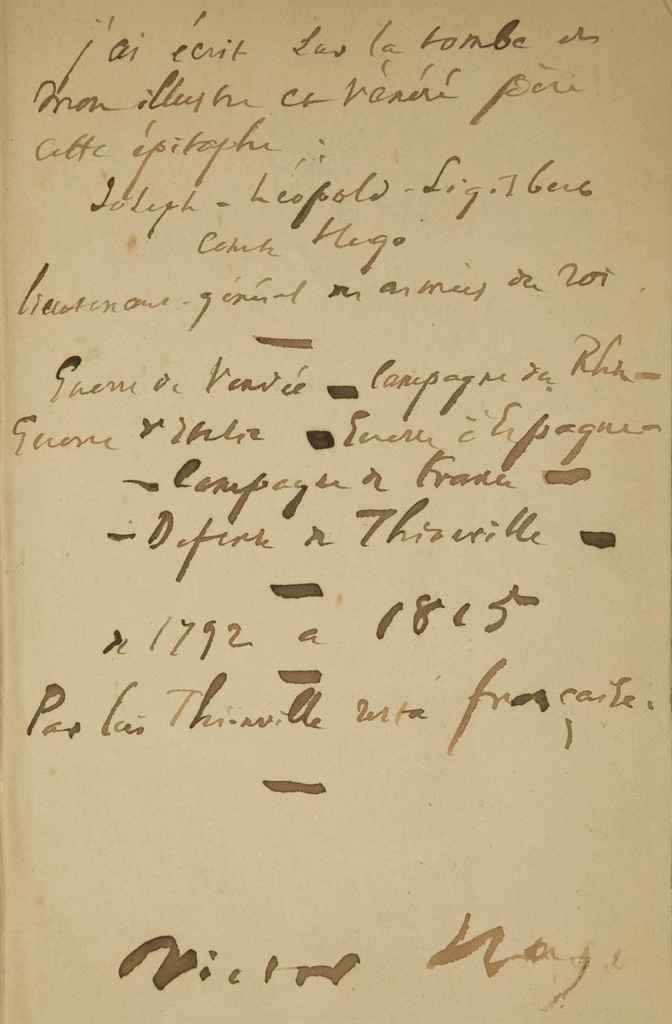 j'ai écrit sur la tombe de
mon illustre et vénéré père
cette épitaphe :
Joseph - Léopold - Sigisbert
comte Hugo
lieutenant-général des armées du roi.
—
Guerre de Vendée — Campagne du Rhin —
Guerre d'Italie — Guerre d'Espagne —
— Campagne de France —
— Défense de Thionville —
—
de 1792 à 1815
—
Par lui Thionville resta française.
—
Victor Hugo